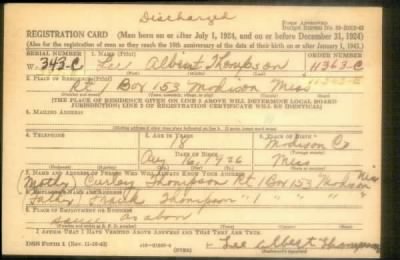 Discharged
REGISTRATION CARD (Men born on or after July 1, 1924, and on or before December 31, 1924)
(Also for the registration of men as they reach the 18th anniversary of the date of their birth on or after January 1, 1943.)
SERIAL NUMBER
1. NAME (Print)
ORDER NUMBER
W 343-C Lee Albert Thompson 11363-C
2. PLACE OF RESIDENCE (Print)
Rt 1 Box 153 Madison Miss
[THE PLACE OF RESIDENCE GIVEN ON LINE 2 ABOVE WILL DETERMINE LOCAL BOARD
JURISDICTION; LINE 2 OF REGISTRATION CERTIFICATE WILL BE IDENTICAL]
3. MAILING ADDRESS
4. TELEPHONE
5. AGE IN YEARS
6. PLACE OF BIRTH
18
Madison Co
DATE OF BIRTH
Aug 16, 1926
Miss
7. NAME AND ADDRESS OF PERSON WHO WILL ALWAYS KNOW YOUR ADDRESS
Curley Thompson Rt 1 Box 153 Madison Miss
8. EMPLOYER'S NAME AND ADDRESS
Frank Thompson " 1 " "
9. PLACE OF EMPLOYMENT OR BUSINESS
same as above
I AFFIRM THAT I HAVE VERIFIED ABOVE ANSWERS AND THAT THEY ARE TRUE.
DSS Form 1
(OVER)
Lee Albert Thompson